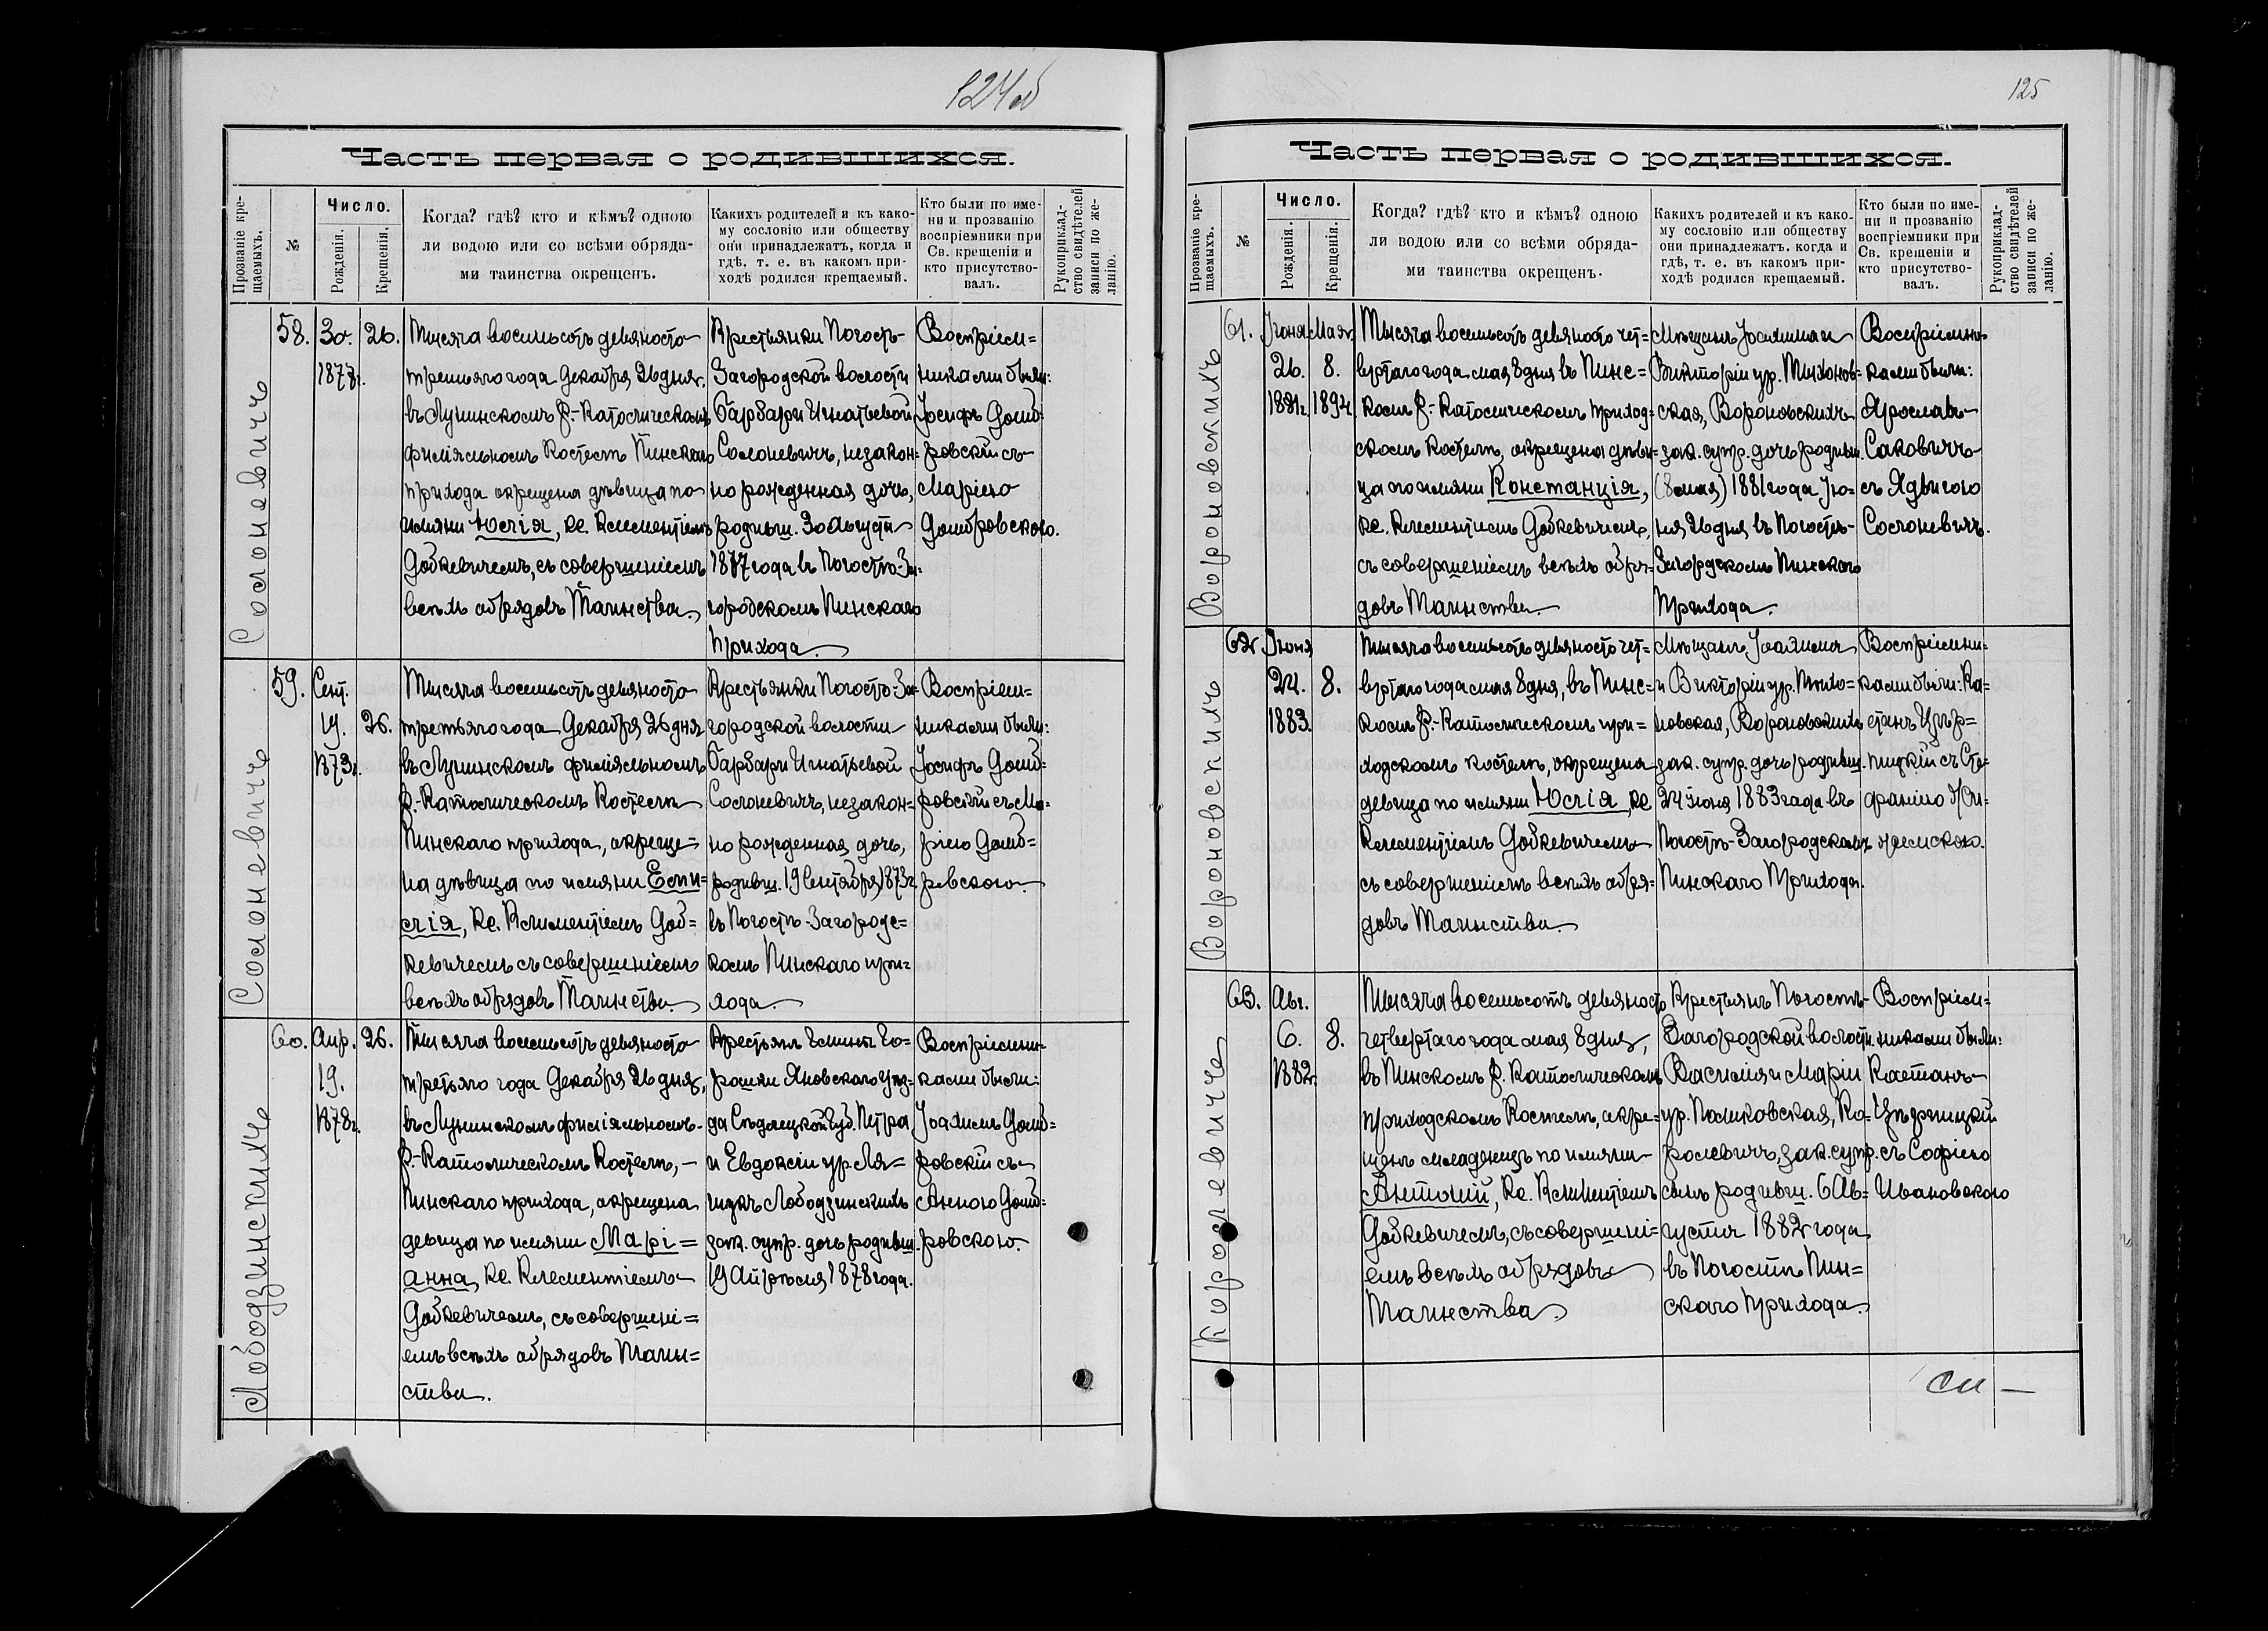 124об
Часть первая о родившихся.
Прозваніе кре-
щаемыхъ.
№
Число.
Рожденія.
Крещенія.
Когда? гдѣ? кто и кѣмъ? одною
ли водою или со всѣми обряда-
ми таинства окрещенъ.
Какихъ родителей и къ како-
му сословію или обществу
они принадлежатъ, когда и
гдѣ, т. е. въ какомъ при-
ходѣ родился крещаемый.
Кто были по име-
ни и прозванію
воспріемники при
Св. крещеніи и
кто присутство-
валъ.
Рукоприклад-
ство свидѣтелей
записи по же-
ланію.
Солоневичъ
58.
30.
1877г.
26.
Тысяча восемьсотъ девяносто
третьяго года Декабря 26 дня.
въ Лунинскомъ Р.-Католическомъ
филіяльномъ Костелѣ Пинскаго
прихода окрещена дѣвица по
имяни Юлія, Кс. Клементіемъ
Довкевичемъ, съ совершеніемъ
всѣхъ обрядовъ Таинства.
Крестьянки Погостъ-
Загородской волости
Барбары Игнатьевой
Солоневичъ, незакон-
но рожденная дочь,
родивш. 30 Августа
1877 года въ Погостѣ-За-
городскомъ Пинскаго
прихода.
Воспріем=
никами были:
Іосифъ Домб-
ровскій съ
Маріею
Домбровскою.
Солоневичъ
59.
Сент.
19.
1873г.
26.
Тысяча восемьсотъ девяносто
третьяго года Декабря 26 дня
въ Лунинскомъ филіяльномъ
Р.-Католическомъ Костелѣ
Пинскаго прихода, окреще=
на дѣвица по имяни Еми=
лія, Кс. Климентіемъ Дов=
кевичемъ съ совершеніемъ
всѣхъ обрядовъ Таинства.
Крестьянки Погостъ-За-
городской волости
Барбары Игнатьевой
Солоневичъ, незакон=
но рожденная дочь,
родивш. 19 Сентября 1873г
въ Погостѣ-Загородс=
комъ Пинскаго при=
хода.
Воспріем=
никами были:
Іосифъ Домб=
ровскій съ Ма=
ріею Домб=
ровскою.
Лободзинскихъ
60.
Апр.
19.
1878г.
26.
Тысяча восемьсотъ девяносто
третьяго года Декабря 26 дня,
въ Лунинскомъ филіяльномъ
Р.-Католическомъ Костелѣ,
Пинскаго прихода, окрещена
девица по имяни Марі=
анна, Кс. Клементіемъ
Довкевичемъ, съ совершені=
емъ всѣхъ обрядовъ Таин=
ства.
Крестьянъ Го=
Яновскаго уѣз=
да Сѣдлецкой Губ. Петра
и Евдокіи ур.
Лободзинскихъ
зак. супр. дочь родивш.
19 Апрѣля 1878 года.
Воспріемни-
ками были:
Іоахимъ Домб=
ровскій съ
Анною Домб=
ровскою.
125
Часть первая о родившихся.
Прозваніе кре-
щаемыхъ.
№
Число.
Рожденія.
Крещенія.
Когда? гдѣ? кто и кѣмъ? одною
ли водою или со всѣми обряда-
ми таинства окрещенъ.
Какихъ родителей и къ како-
му сословію или обществу
они принадлежатъ. когда и
гдѣ, т. е. въ какомъ при-
ходѣ родился крещаемый.
Кто были по име-
ни и прозванію
воспріемники при
Св. крещеніи и
кто присутство-
валъ.
Рукоприклад-
ство свидѣтелей
записи по же-
ланію.
Вороновскихъ
61.
Іюня
26.
1881г.
Мая
8.
1894
Тысяча восемьсотъ девяносто чет=
вертаго года мая 8 дня въ Пинс=
комъ Р.-Католическомъ приход=
скомъ Костелѣ, окрещена дѣви=
ца по имяни Констанція,
Кс. Клементіемъ Довкевичемъ,
съ совершеніемъ всѣхъ обря-
довъ Таинства.
Мѣщанъ Іоахима и
Викторіи ур. Тихонов=
ская, Вороновскихъ
зак. супр. дочь родивш.
(8 мая) 1881 года Ію-
ня 26 дня въ Погостѣ-
Загородскомъ Пинскаго
прихода.
Воспріемни-
ками были:
Ярославъ
Саковичъ
съ Ядвигою
Солоневичъ.
Вороновскихъ
62
Іюня
24.
1883.
8.
Тысяча восемьсотъ девяносто чет=
вертаго года мая 8 дня, въ Пинс=
комъ Р.-Католическомъ при=
ходскомъ костелѣ, окрещена
девица по имяни Юлія, Кс
Клементіемъ Довкевичемъ
съ совершеніемъ всѣхъ обря=
довъ Таинства.
Мѣщанъ Іоахима
и Викторіи ур. Тихо=
новская, Вороновскихъ
зак. супр. дочь родивш.
24 іюня 1883 года въ
Погостѣ-Загородскомъ
Пинскаго Прихода.
Воспріемни=
ками были: Ка=
етанъ
съ Сте=
фаніею
Королевичъ
63.
Авг.
6.
1882г.
8.
Тысяча восемьсотъ девяносто
четвертаго года мая 8 дня,
въ Пинскомъ Р. Католическомъ
приходскомъ Костелѣ, окре=
щенъ младенецъ по имяни
Антоній, Кс. Климентіемъ
Довкевичемъ, съ совершені=
емъ всѣхъ обрядовъ
Таинства.
Крестьянъ Погостъ-
Загородской волости
Василія и Маріи
ур. Ко=
ролевичъ, зак. супр.
сынъ родивш. 6 Ав=
густа 1882 года
въ Погостѣ Пин=
скаго прихода.
Воспріем=
никами были:
Каетанъ
съ Софіею
Ивановскою